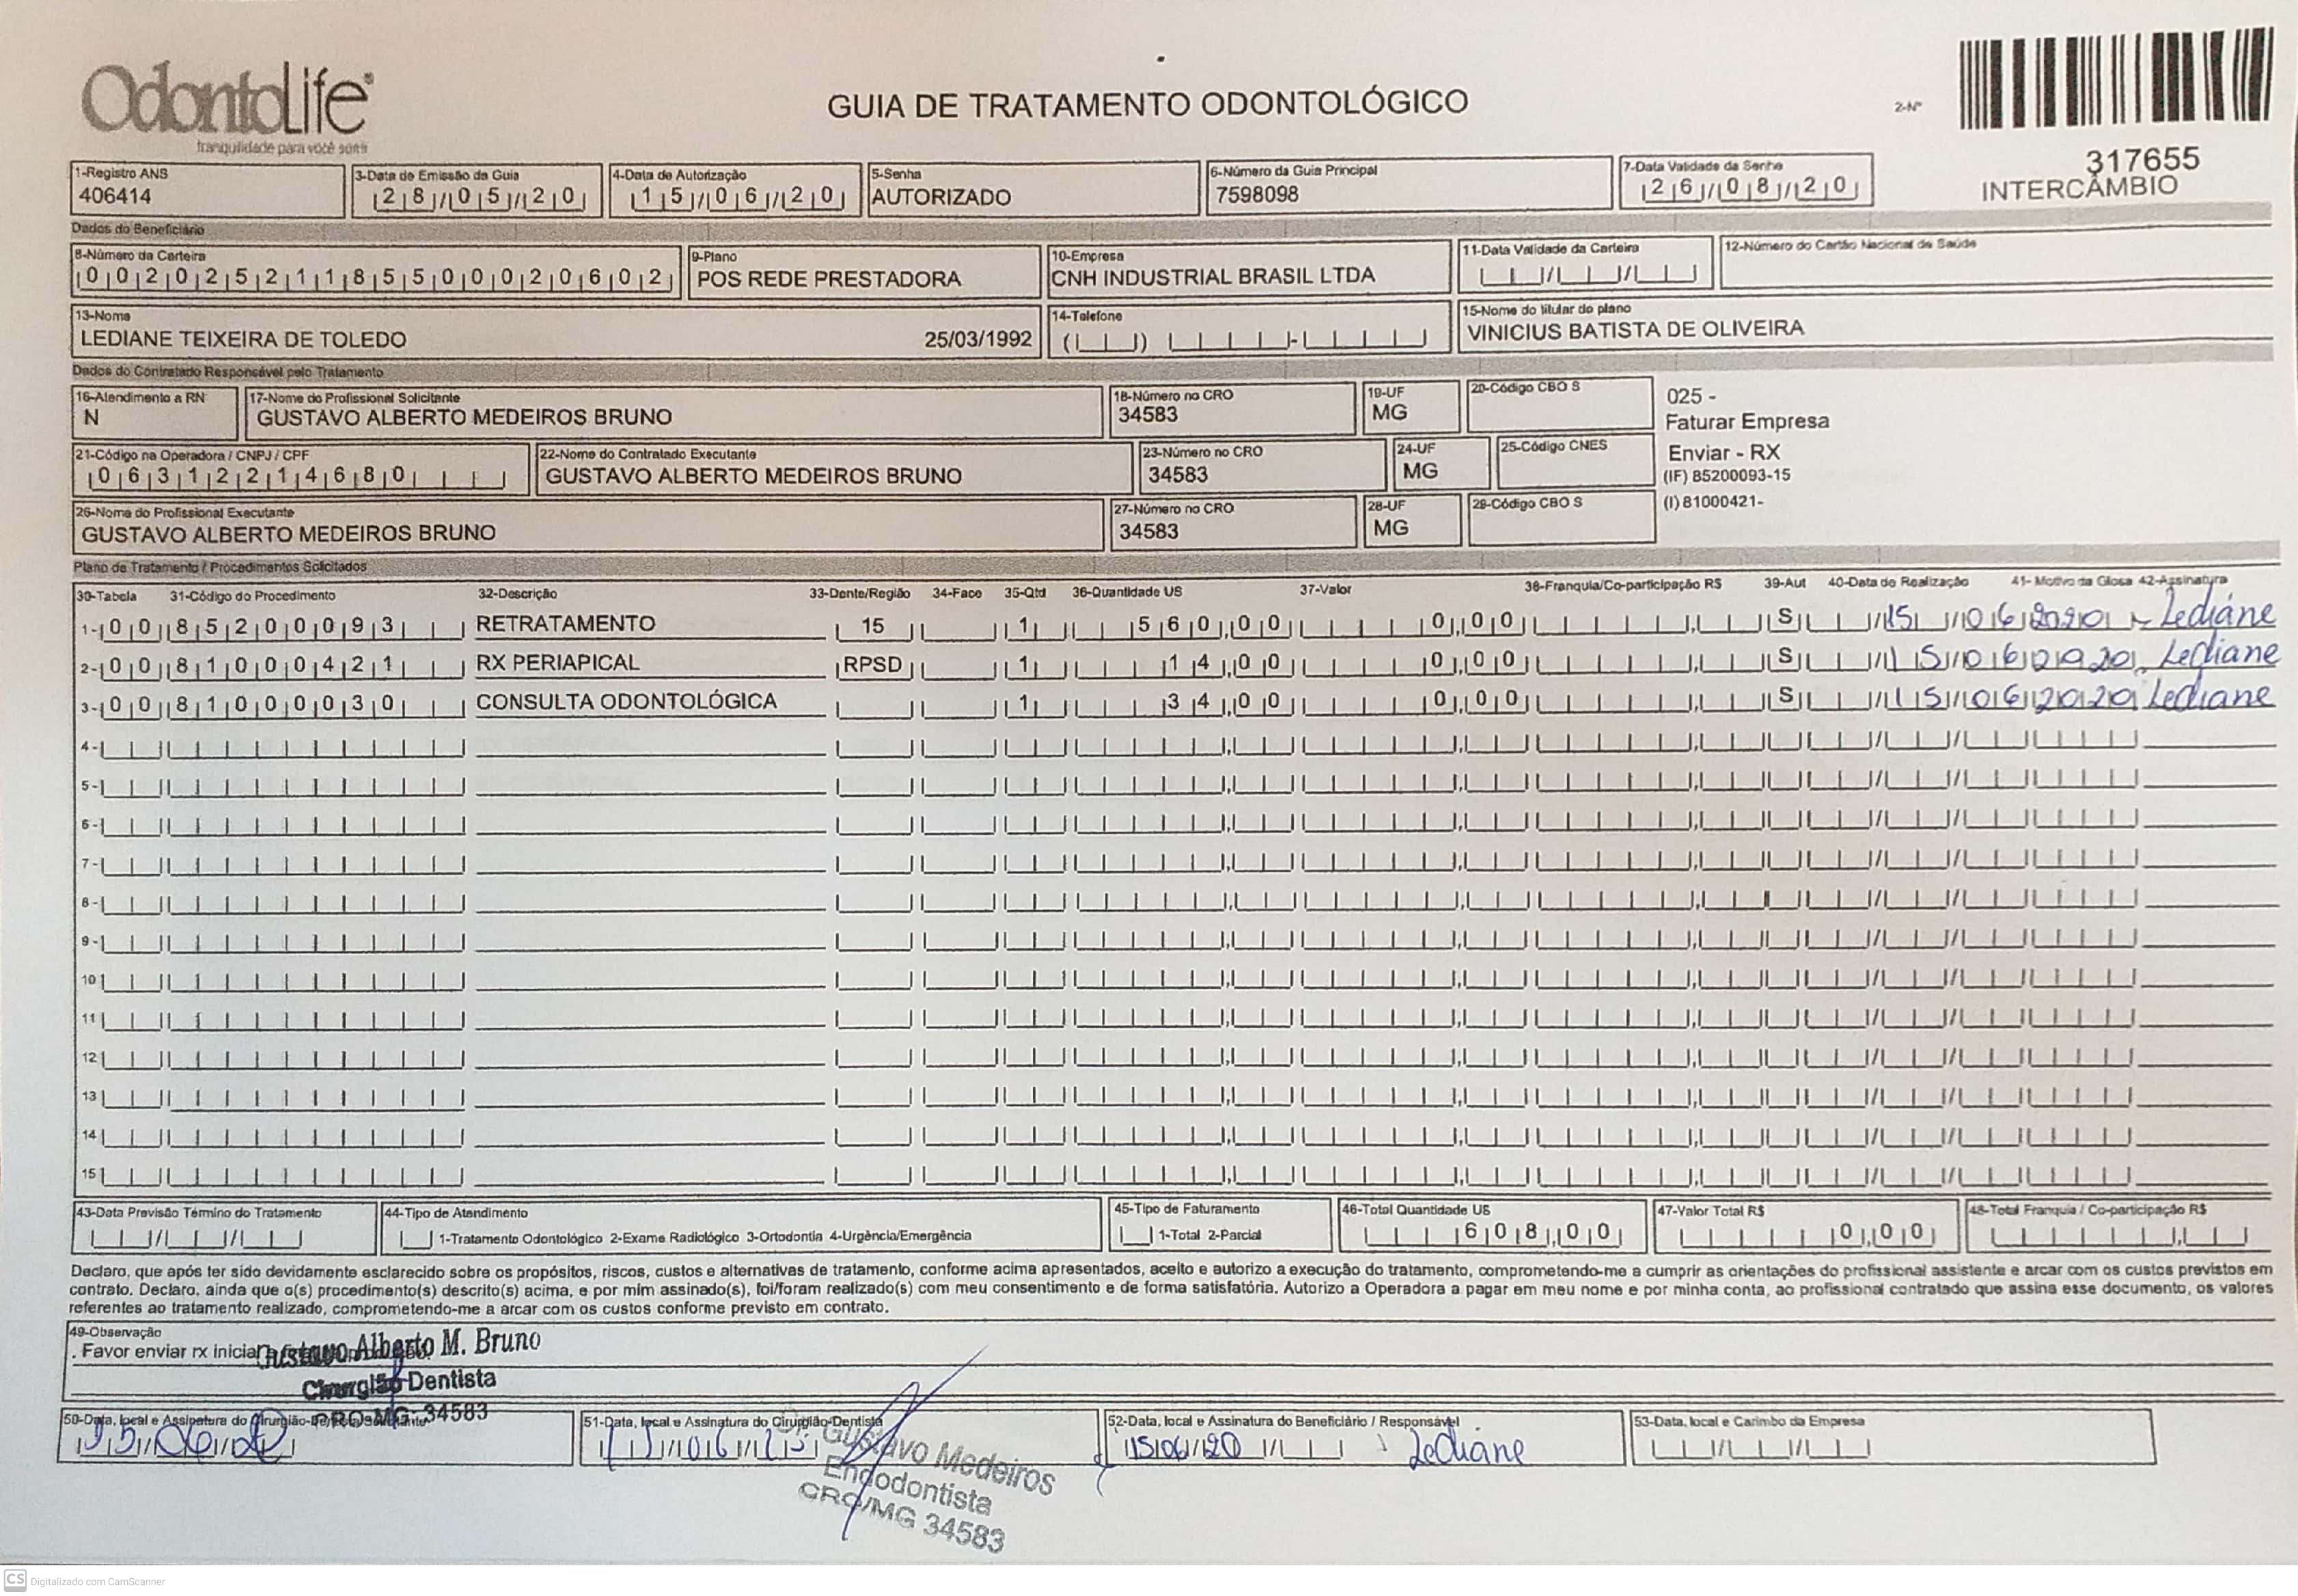 OdontoLife®
tranquilidade para você sorrir
GUIA DE TRATAMENTO ODONTOLÓGICO
2-Nº
317655
INTERCÂMBIO
1-Registro ANS
406414
3-Data de Emissão da Guia
28/05/20
4-Data de Autorização
15/06/20
5-Senha
AUTORIZADO
6-Número da Guia Principal
7598098
7-Data Validade da Senha
26/08/20
Dados do Beneficiário
8-Número da Carteira
00202521185500020602
9-Plano
POS REDE PRESTADORA
10-Empresa
CNH INDUSTRIAL BRASIL LTDA
11-Data Validade da Carteira
12-Número do Cartão Nacional de Saúde
13-Nome
LEDIANE TEIXEIRA DE TOLEDO 25/03/1992
14-Telefone
15-Nome do titular do plano
VINICIUS BATISTA DE OLIVEIRA
Dados do Contratado Responsável pelo Tratamento
16-Atendimento a RN
N
17-Nome do Profissional Solicitante
GUSTAVO ALBERTO MEDEIROS BRUNO
18-Número no CRO
34583
19-UF
MG
20-Código CBO S
025 -
Faturar Empresa
Enviar - RX
(IF) 85200093-15
(I) 81000421-
21-Código na Operadora / CNPJ / CPF
06312214680
22-Nome do Contratado Executante
GUSTAVO ALBERTO MEDEIROS BRUNO
23-Número no CRO
34583
24-UF
MG
25-Código CNES
26-Nome do Profissional Executante
GUSTAVO ALBERTO MEDEIROS BRUNO
27-Número no CRO
34583
28-UF
MG
29-Código CBO S
Plano de Tratamento / Procedimentos Solicitados
30-Tabela 31-Código do Procedimento 32-Descrição 33-Dente/Região 34-Face 35-Qtd 36-Quantidade US 37-Valor 38-Franquia/Co-participação R$ 39-Aut 40-Data de Realização 41- Motivo da Glosa 42-Assinatura
1- 00 85200093 RETRATAMENTO 15 1 560,00 0,00 S 15/06/2020 Lediane
2- 00 81000421 RX PERIAPICAL RPSD 1 14,00 0,00 S 15/06/2020 Lediane
3- 00 81000030 CONSULTA ODONTOLÓGICA 1 34,00 0,00 S 15/06/2020 Lediane
4-
5-
6-
7-
8-
9-
10
11
12
13
14
15
43-Data Previsão Término do Tratamento
44-Tipo de Atendimento
1-Tratamento Odontológico 2-Exame Radiológico 3-Ortodontia 4-Urgência/Emergência
45-Tipo de Faturamento
1-Total 2-Parcial
46-Total Quantidade US
608,00
47-Valor Total R$
0,00
48-Total Franquia / Co-participação R$
Declaro, que após ter sido devidamente esclarecido sobre os propósitos, riscos, custos e alternativas de tratamento, conforme acima apresentados, aceito e autorizo a execução do tratamento, comprometendo-me a cumprir as orientações do profissional assistente e arcar com os custos previstos em
contrato. Declaro, ainda que o(s) procedimento(s) descrito(s) acima, e por mim assinado(s), foi/foram realizado(s) com meu consentimento e de forma satisfatória. Autorizo a Operadora a pagar em meu nome e por minha conta, ao profissional contratado que assina esse documento, os valores
referentes ao tratamento realizado, comprometendo-me a arcar com os custos conforme previsto em contrato.
49-Observação
. Favor enviar rx inicial
Gustavo Alberto M. Bruno
Cirurgião Dentista
CRO-MG-34583
50-Data, local e Assinatura do Cirurgião-Dentista Solicitante
15/06/20
51-Data, local e Assinatura do Cirurgião-Dentista
Dr. Gustavo Medeiros
Endodontista
CRO/MG 34583
52-Data, local e Assinatura do Beneficiário / Responsável
15/06/20 Lediane
53-Data, local e Carimbo da Empresa
CS Digitalizado com CamScanner